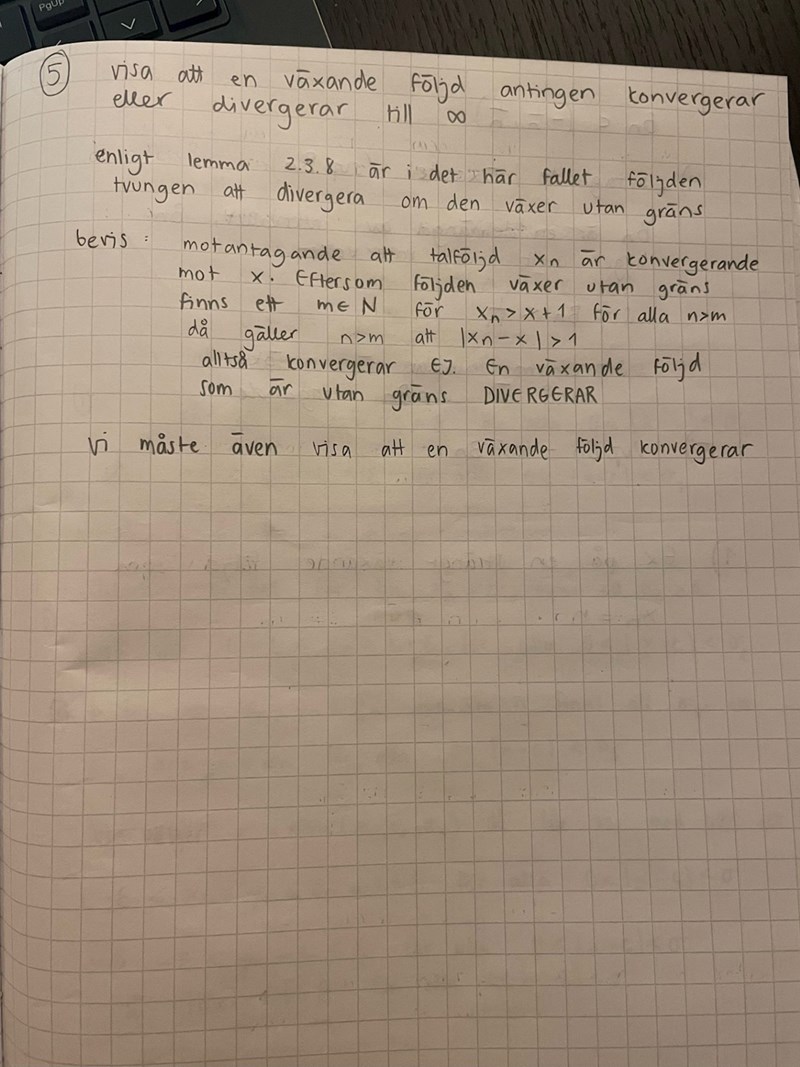 PgUp
5 visa att en växande följd antingen konvergerar
eller divergerar till ∞
enligt lemma 2.3.8 är i det här fallet följden
tvungen att divergera om den växer utan gräns
bevis: motantagande att talföljd xn är konvergerande
mot x. Eftersom följden växer utan gräns
finns ett m∈N för xn > x+1 för alla n>m
då gäller n>m att |xn - x| > 1
alltså konvergerar EJ. En växande följd
som är utan gräns DIVERGERAR
Vi måste även visa att en växande följd konvergerar